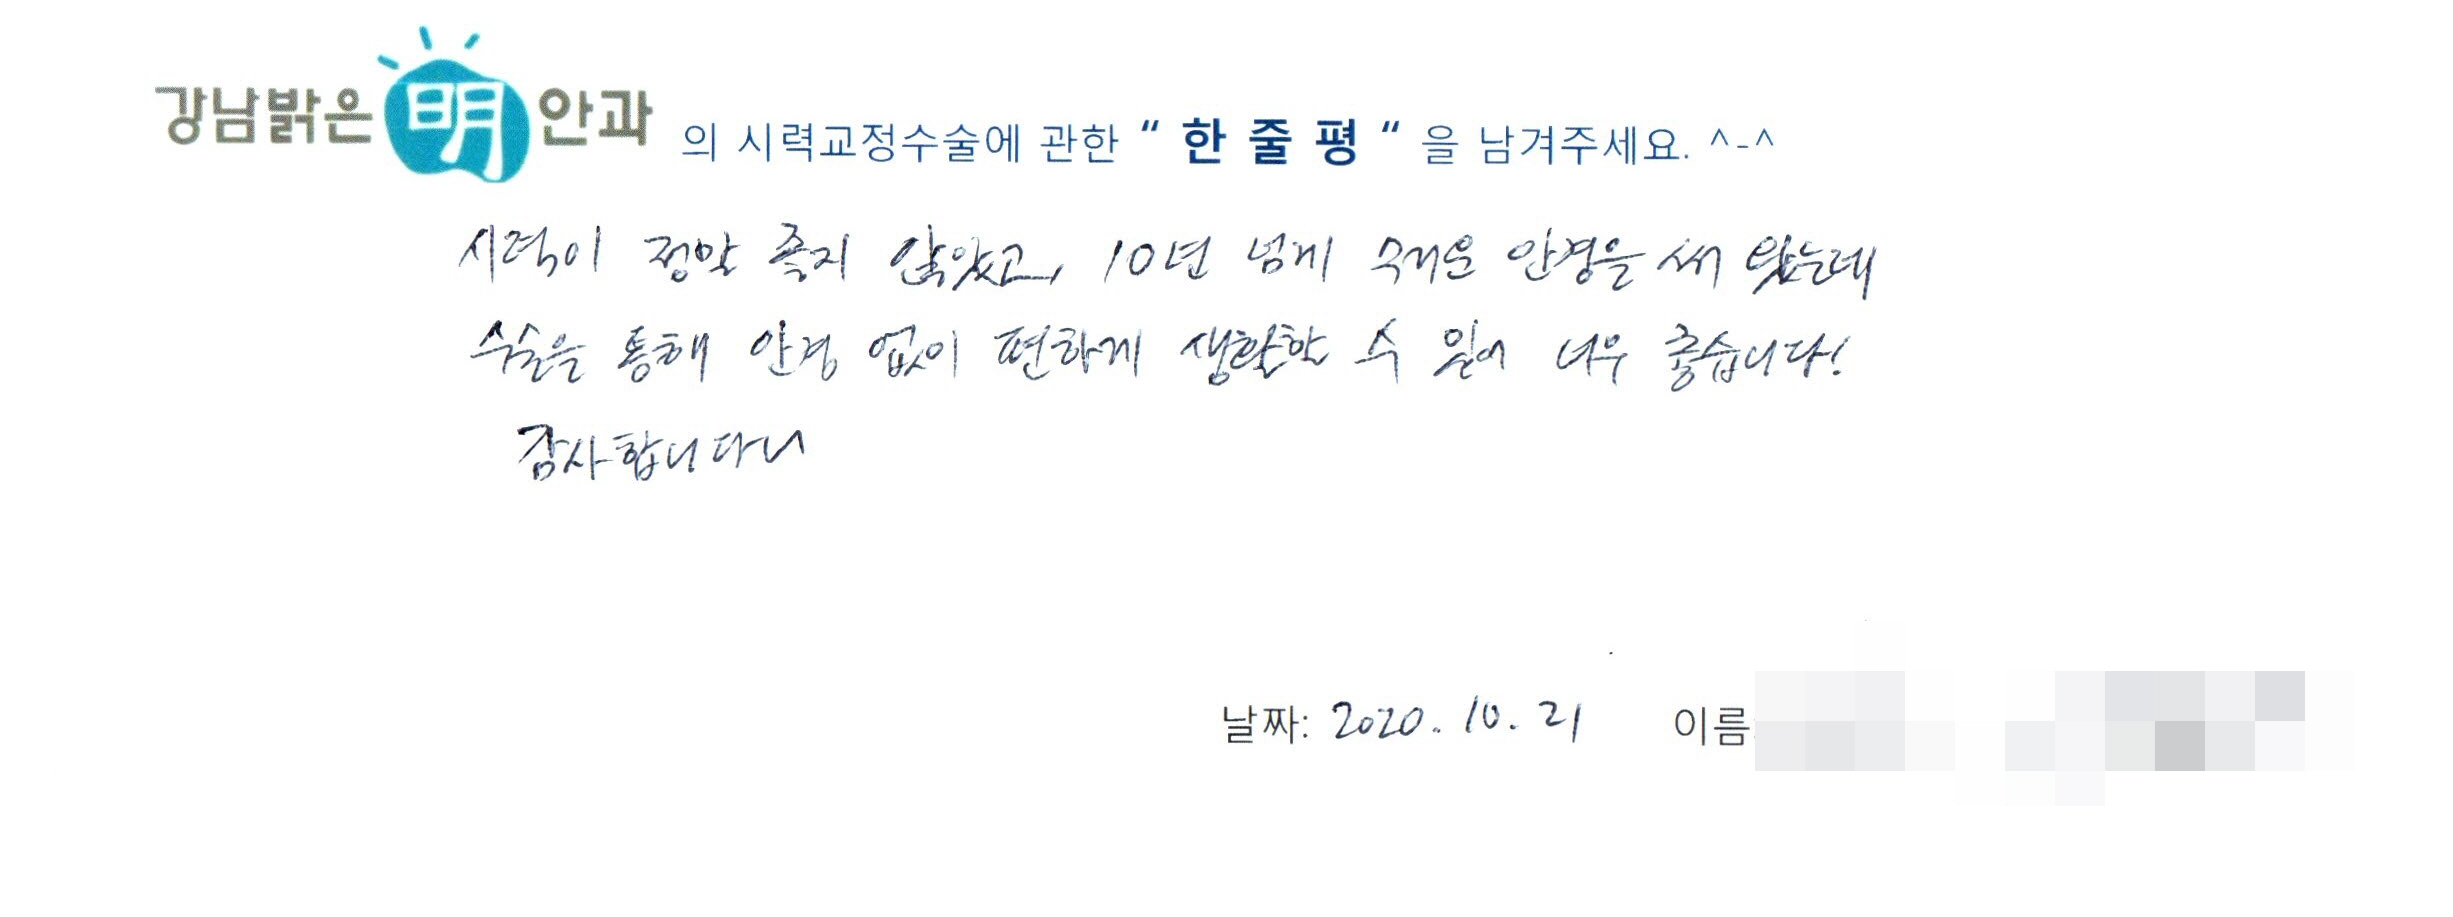 강남밝은 明 안과 의 시력교정수술에 관한 “ 한 줄 평 “ 을 남겨주세요. ^-^
시력이 정말 좋지 않았고, 10년 넘게 무거운 안경을 써 왔는데
수술을 통해 안경 없이 편하게 생활할 수 있어 너무 좋습니다!
감사합니다~
날짜: 2020. 10. 21 이름: